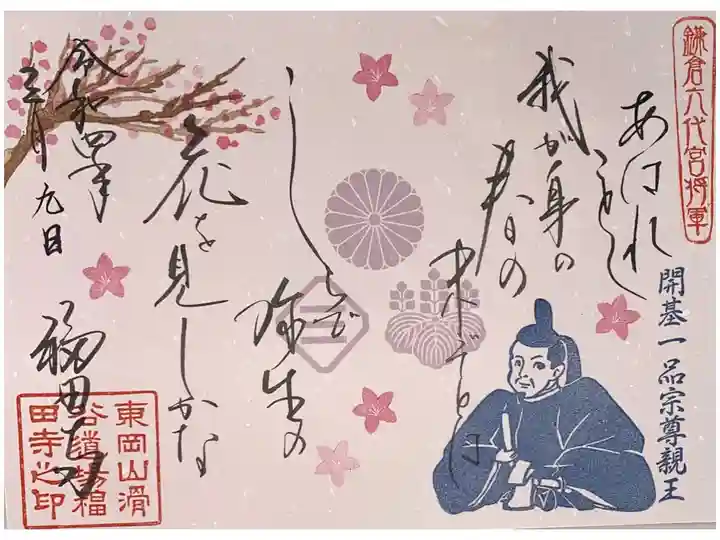 鎌倉六代宮将軍
開基一品宗尊親王
あはれ
ことし
我が身の
春の
末ぞとは
しらで
弥生の
花を見しかな
令和四年
三月九日
福田寺
東岡山滑
谷道場福
田寺之印